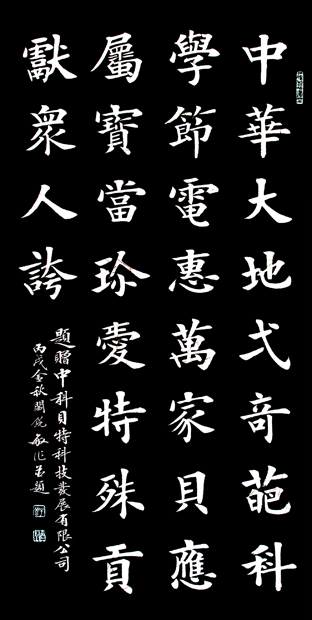 中華大地弌竒葩科
學節電惠萬家貝應
屬寶當珍愛特殊貢
獻衆人誇
題贈中科貝特科技發展有限公司
丙戌金秋 作並題